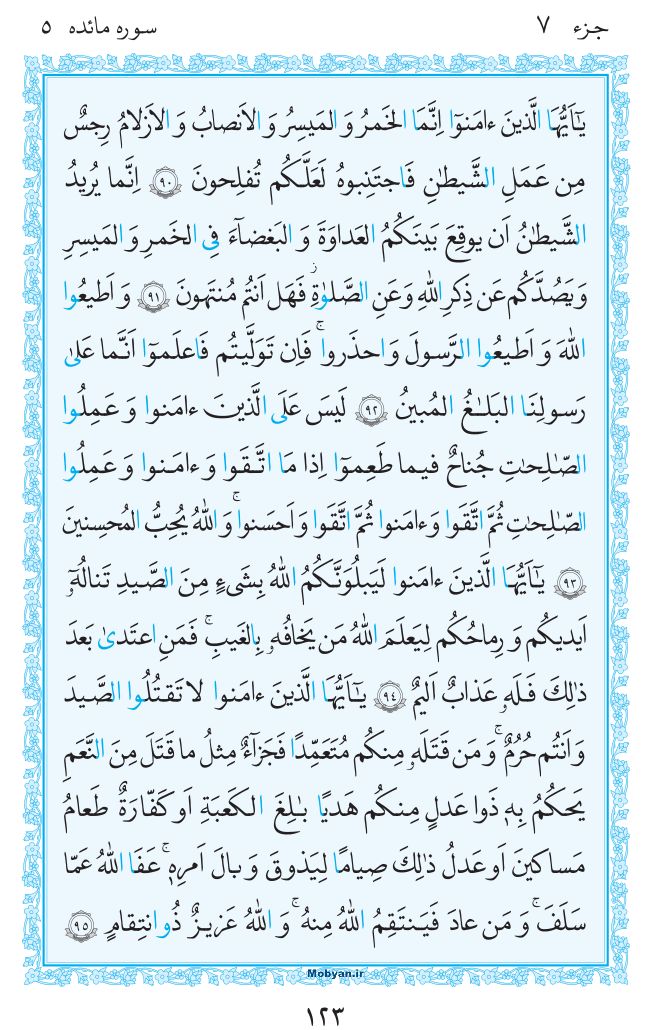 جزء ٧
سوره مائده ٥
يٰٓاَيُّهَا الَّذينَ ءامَنوٓا اِنَّمَا الخَمرُ وَ المَيسِرُ وَ الاَنصابُ وَ الاَزلامُ رِجسٌ
مِن عَمَلِ الشَّيطٰنِ فَاجتَنِبوهُ لَعَلَّكُم تُفلِحونَ ﴿٩٠﴾ اِنَّما يُريدُ
الشَّيطٰنُ اَن يوقِعَ بَينَكُمُ العَداوَةَ وَ البَغضآءَ فِى الخَمرِ وَ المَيسِرِ
وَ يَصُدَّكُم عَن ذِكرِ اللهِ وَ عَنِ الصَّلوٰةِ ز فَهَل اَنتُم مُنتَهونَ ﴿٩١﴾ وَ اَطيعُوا
اللهَ وَ اَطيعُوا الرَّسولَ وَ احذَروا ۚ فَاِن تَوَلَّيتُم فَاعلَموٓا اَنَّما عَلىٰ
رَسولِنَا البَلٰغُ المُبينُ ﴿٩٢﴾ لَيسَ عَلَى الَّذينَ ءامَنوا وَ عَمِلُوا
الصّٰلِحٰتِ جُناحٌ فيما طَعِموٓا اِذا مَا اتَّقَوا وَ ءامَنوا وَ عَمِلُوا
الصّٰلِحٰتِ ثُمَّ اتَّقَوا وَ ءامَنوا ثُمَّ اتَّقَوا وَ اَحسَنوا ۚ وَ اللهُ يُحِبُّ المُحسِنينَ
﴿٩٣﴾ يٰٓاَيُّهَا الَّذينَ ءامَنوا لَيَبلُوَنَّكُمُ اللهُ بِشَىءٍ مِنَ الصَّيدِ تَنالُهٗٓ
اَيديكُم وَ رِماحُكُم لِيَعلَمَ اللهُ مَن يَخافُهٗ بِالغَيبِ ۚ فَمَنِ اعتَدىٰ بَعدَ
ذٰلِكَ فَلَهٗ عَذابٌ اَليمٌ ﴿٩٤﴾ يٰٓاَيُّهَا الَّذينَ ءامَنوا لا تَقتُلُوا الصَّيدَ
وَ اَنتُم حُرُمٌ ۚ وَ مَن قَتَلَهٗ مِنكُم مُتَعَمِّدًا فَجَزآءٌ مِثلُ ما قَتَلَ مِنَ النَّعَمِ
يَحكُمُ بِهٖ ذَوا عَدلٍ مِنكُم هَديًا بٰلِغَ الكَعبَةِ اَو كَفّارَةٌ طَعامُ
مَساكينَ اَو عَدلُ ذٰلِكَ صِيامًا لِيَذوقَ وَبالَ اَمرِهٖ ۗ عَفَا اللهُ عَمّا
سَلَفَ ۚ وَ مَن عادَ فَيَنتَقِمُ اللهُ مِنهُ ۗ وَ اللهُ عَزيزٌ ذُو انتِقامٍ ﴿٩٥﴾
Mobyan.ir
١٢٣